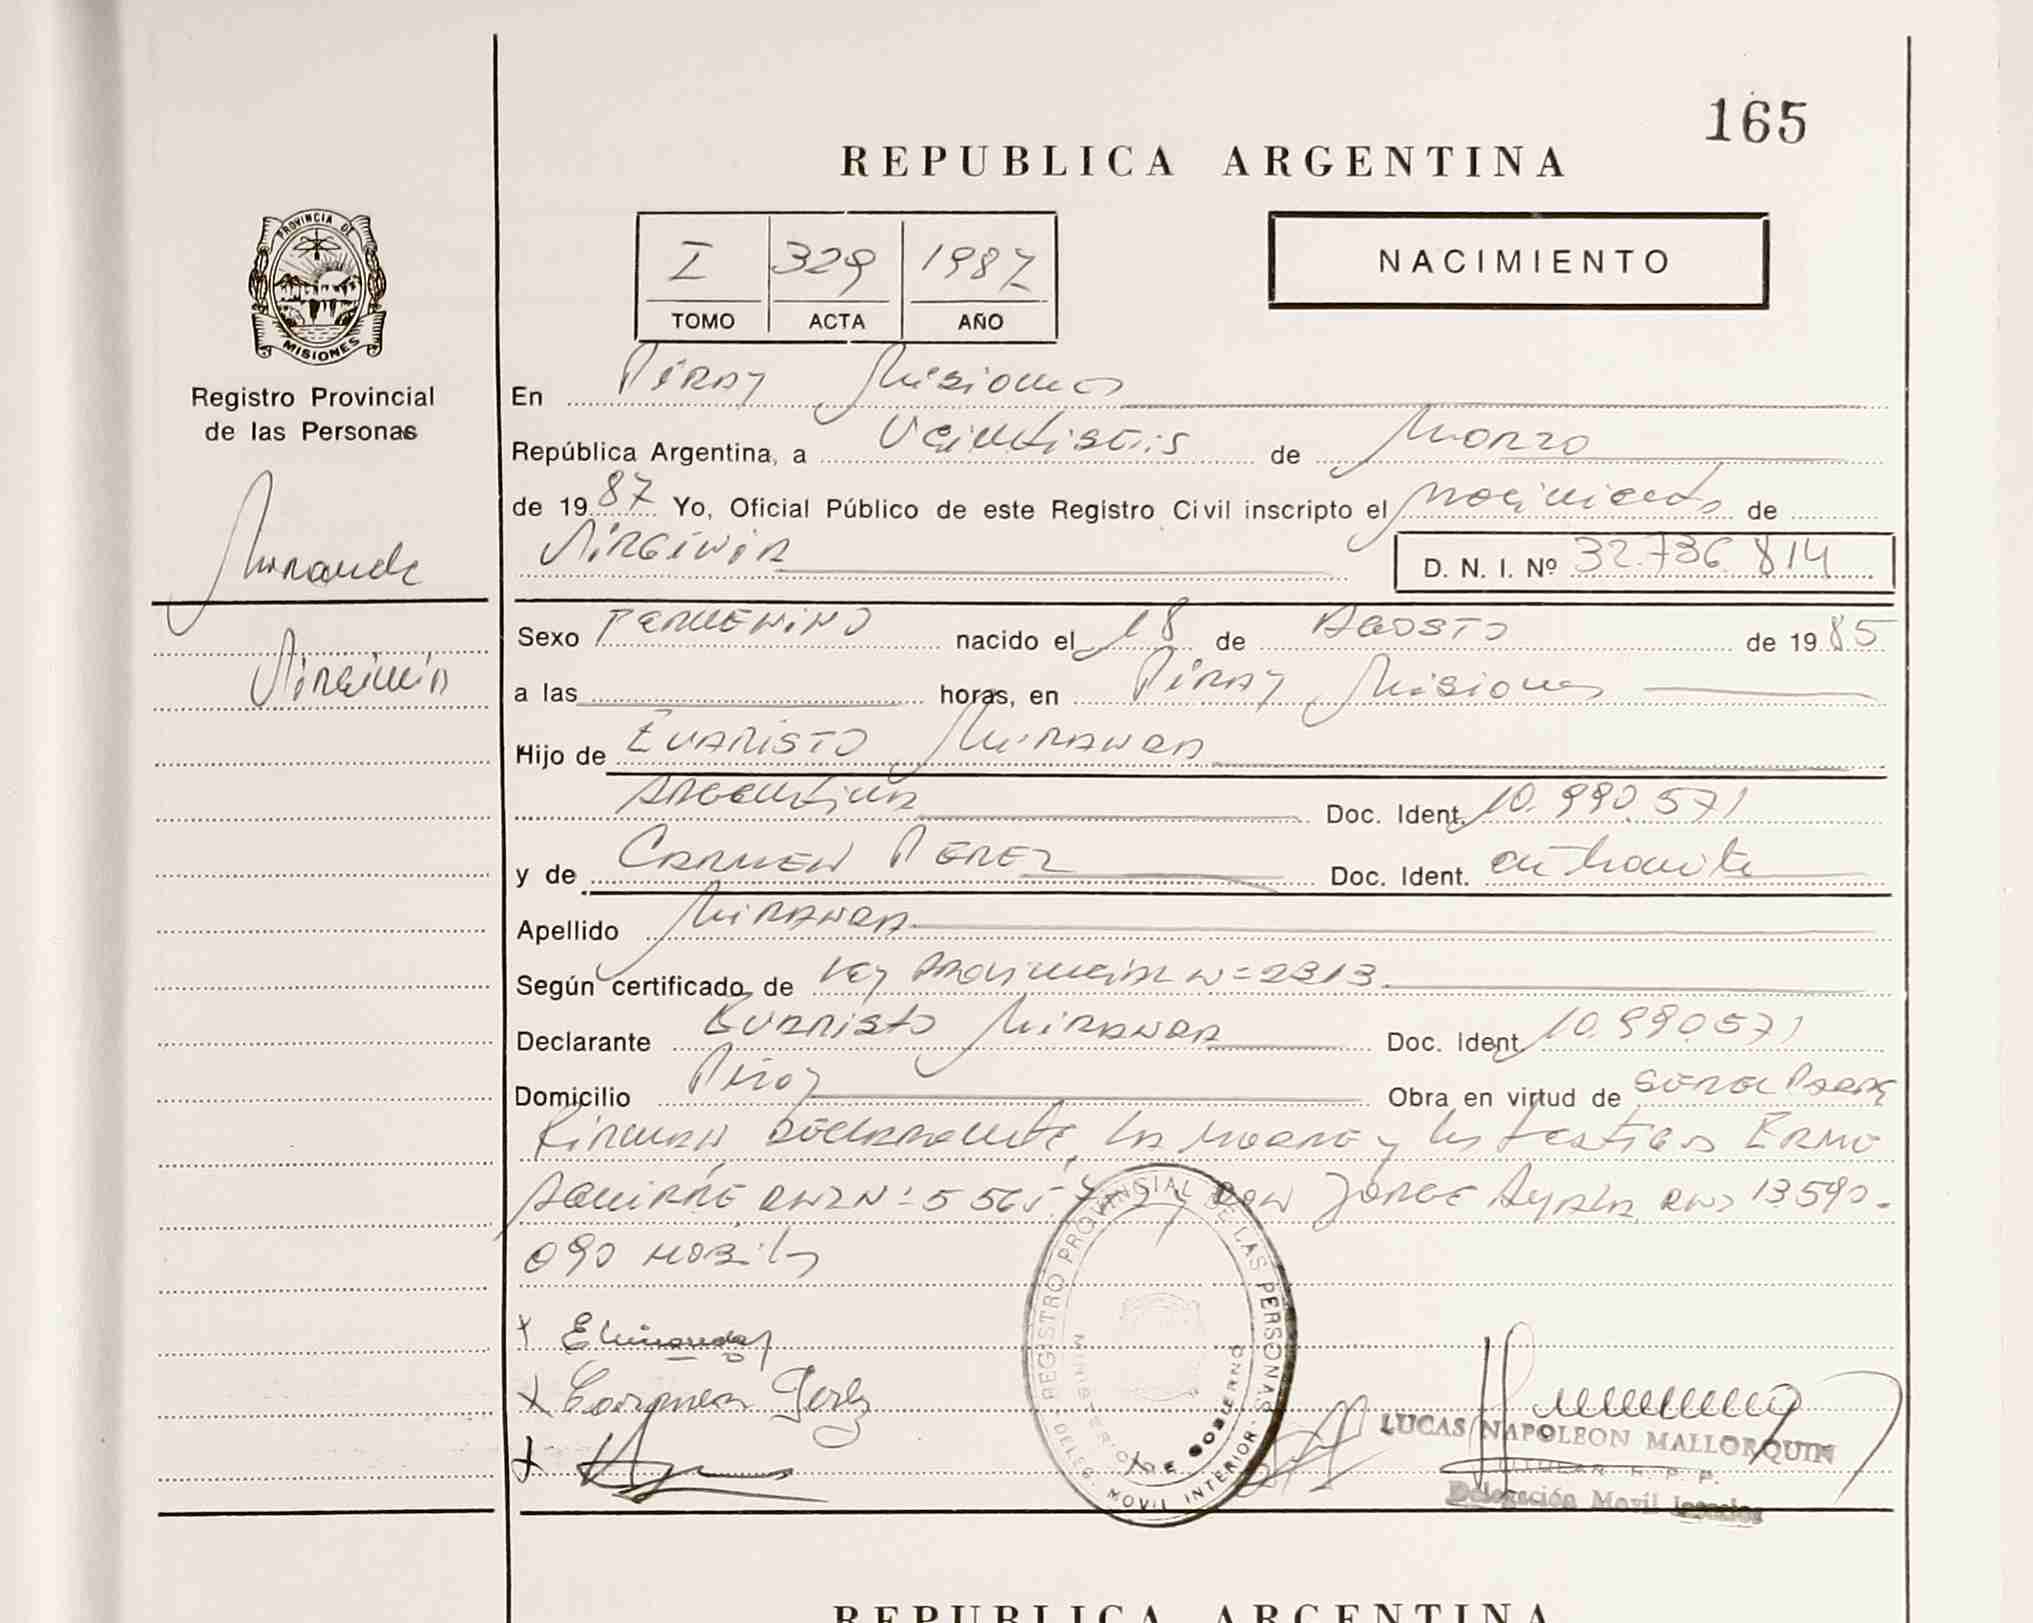 165
REPUBLICA ARGENTINA
I 329 1987
TOMO ACTA AÑO
NACIMIENTO
PROVINCIA DE MISIONES
Registro Provincial
de las Personas
Miranda
Virginia
En Piray Misiones
República Argentina, a Veintiseis de Marzo
de 1987 Yo, Oficial Público de este Registro Civil inscripto el nacimiento de
Virginia D. N. I. Nº 32.736.814
Sexo Femenino nacido el 18 de Agosto de 1985
a las horas, en Piray Misiones
Hijo de Evaristo Miranda
Argentina Doc. Ident. 10.990.571
y de Carmen Perez Doc. Ident. en tramite
Apellido Miranda
Según certificado de Ley Provincial N= 2313
Declarante Evaristo Miranda Doc. Ident. 10.990571
Domicilio Piray Obra en virtud de ser el Padre
Firman declarante, la madre y los testigos
Aguirre DNI Nº 5 565 y Don Jorge Ayala DNI 13590.
090
x EMiranda
x Carmen Perez
x
REGISTRO PROVINCIAL DE LAS PERSONAS
MINISTERIO DE GOBIERNO
DELEG. MOVIL INTERIOR
LUCAS NAPOLEON MALLORQUIN
TITULAR R. P. P.
Delegación Movil
REPUBLICA ARGENTINA